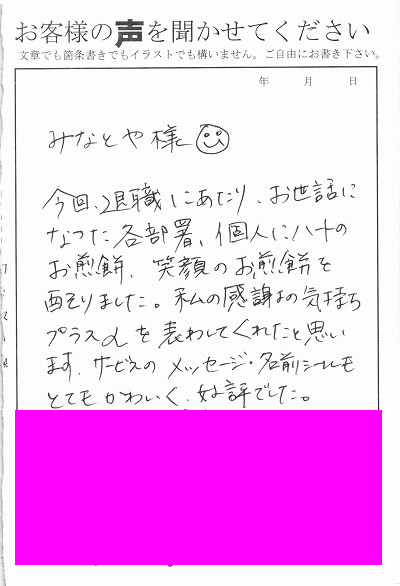 お客様の声を聞かせてください
文章でも箇条書きでもイラストでも構いません。ご自由にお書き下さい。
年 月 日
みなとや様
今回、退職にあたり、お世話に
なった各部署、個人にハートの
お煎餅、笑顔のお煎餅を
配りました。私の感謝の気持ち
プラスαを表わしてくれたと思い
ます。サービスのメッセージ・名前シールも
とてもかわいく、好評でした。